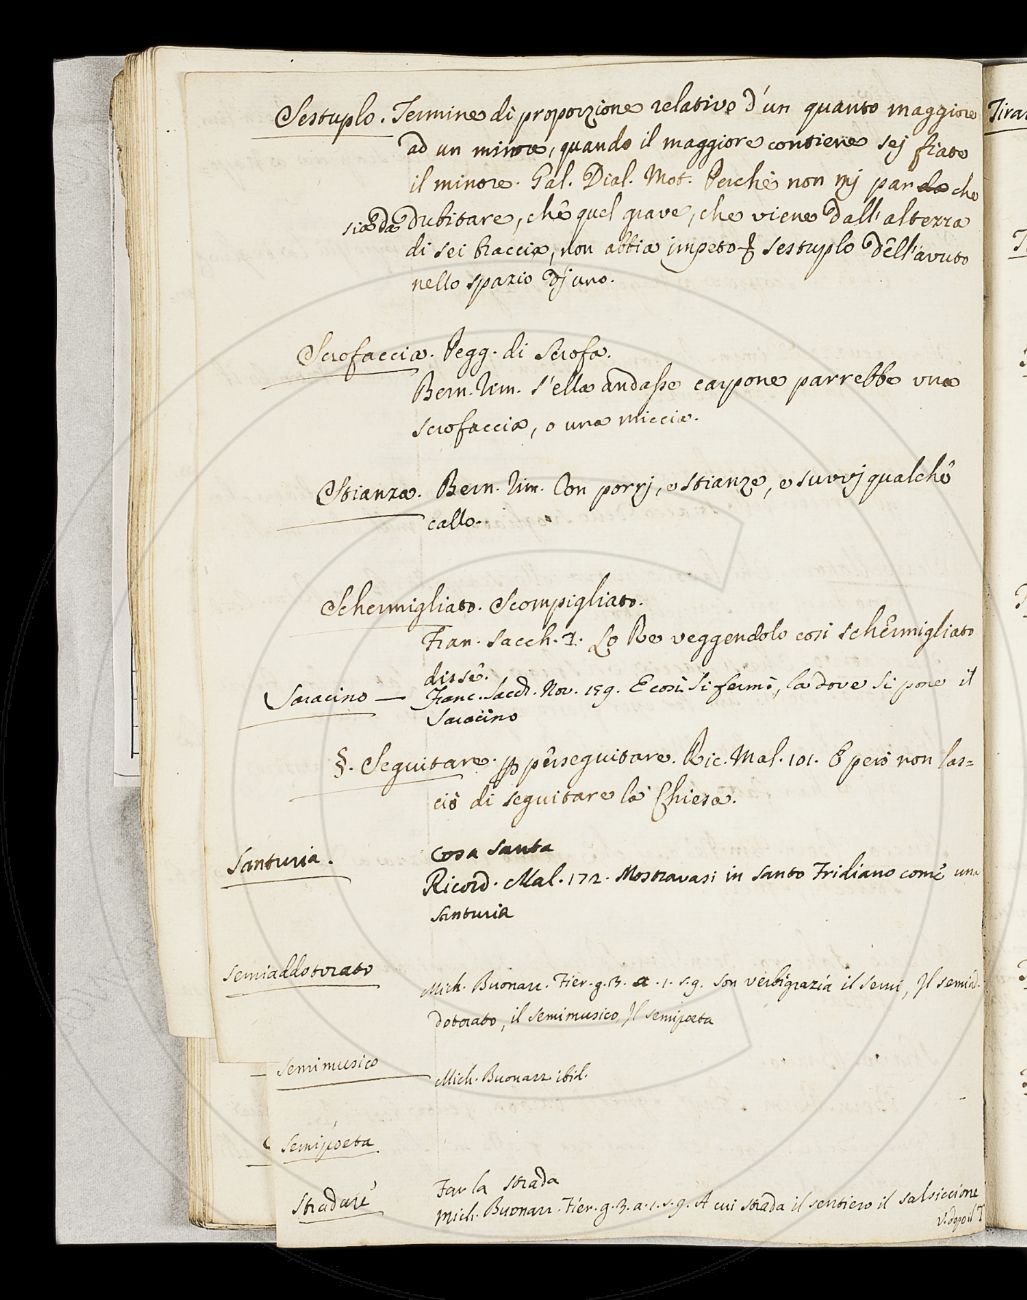 Sestuplo. Termine di proporzione relativo d'un quanto maggiore
ad un minore, quando il maggiore contiene sej fiate
il minore. Gal. Dial. Mot. Perchè non mj par che
sia da dubitare, chè quel grave, che viene dall'altezza
di sei braccia, non abbia impeto sestuplo dell'avuto
nello spazio dj uno.
Scrofaccia. Pegg. di Scrofa.
Bern. rim. s'ella andasse carpone parrebbe una
scrofaccia, o una miccia.
Stianza. Bern. rim. Con porrj, e stianze, e survj qualchè
callo.
Schermigliato. Scompigliato.
Fran. Sacch. Lo Re veggendolo così schermigliato
disse.
Saracino — Franc. Sacch. Nov. 159. E così si fermò, la dove si pone il
Saracino
§. Seguitare. perseguitare. Ric. Mal. 101. E però non las=
ciò di seguitare la Chiesa.
Santuria. Cosa santa
Ricord. Mal. 172. Mostravasi in Santo Fridiano come una
santuria
Semiaddotorato Mich. Buonarr. Fier. g. 3. a. 1. s. 9. Son verbigrazia il semi, Il semiad
dotorato, il semimusico Il semipoeta
Semimusico Mich. Buonarr ibid.
Semipoeta
Stradare Far la strada
Mich. Buonarr. Fier. g. 3. a. 1. s. 9. A cui strada il sentiero il salsiccione
v. dopo il T
Tirar